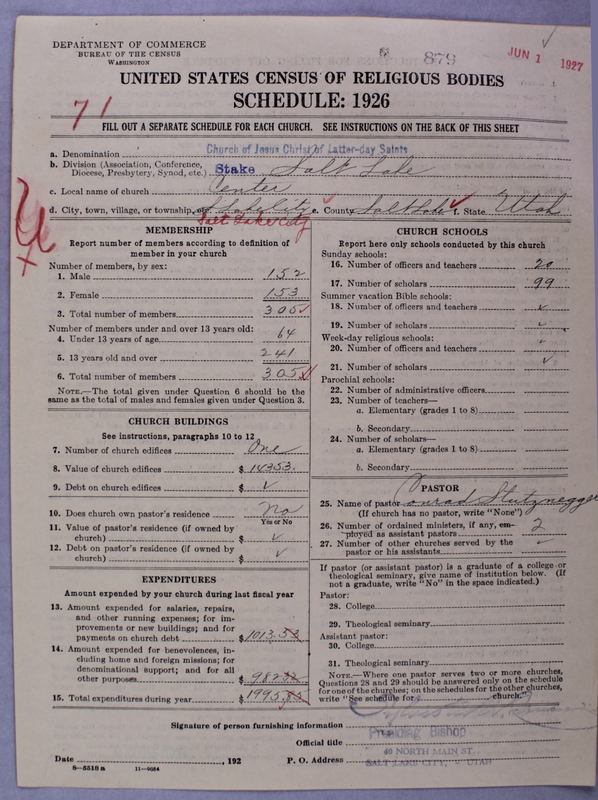 DEPARTMENT OF COMMERCE
BUREAU OF THE CENSUS
WASHINGTON
879
JUN 1 1927
UNITED STATES CENSUS OF RELIGIOUS BODIES
SCHEDULE: 1926
71
FILL OUT A SEPARATE SCHEDULE FOR EACH CHURCH. SEE INSTRUCTIONS ON THE BACK OF THIS SHEET
a. Denomination Church of Jesus Christ of Latter-day Saints
b. Division (Association, Conference, Diocese, Presbytery, Synod, etc.) Stake Salt Lake
c. Local name of church Center
d. City, town, village, or township S. Lake City e. County Salt Lake f. State Utah
Salt Lake City
MEMBERSHIP
Report number of members according to definition of
member in your church
Number of members, by sex:
1. Male 152
2. Female 153
3. Total number of members 305
Number of members under and over 13 years old:
4. Under 13 years of age 64
5. 13 years old and over 241
6. Total number of members 305
NOTE.—The total given under Question 6 should be
same as the total of males and females given under Question 3.
CHURCH BUILDINGS
See instructions, paragraphs 10 to 12
7. Number of church edifices One
8. Value of church edifices $ 14353.
9. Debt on church edifices $ ✓
10. Does church own pastor's residence No
Yes or No
11. Value of pastor's residence (if owned by
church) $ ✓
12. Debt on pastor's residence (if owned by
church) $ ✓
EXPENDITURES
Amount expended by your church during last fiscal year
13. Amount expended for salaries, repairs,
and other running expenses; for im-
provements or new buildings; and for
payments on church debt $ 1013.53
14. Amount expended for benevolences, in-
cluding home and foreign missions; for
denominational support; and for all
other purposes $ 982
15. Total expenditures during year $ 1995
CHURCH SCHOOLS
Report here only schools conducted by this church
Sunday schools:
16. Number of officers and teachers 20
17. Number of scholars 99
Summer vacation Bible schools:
18. Number of officers and teachers ✓
19. Number of scholars ✓
Week-day religious schools:
20. Number of officers and teachers ✓
21. Number of scholars ✓
Parochial schools:
22. Number of administrative officers
23. Number of teachers—
a. Elementary (grades 1 to 8)
b. Secondary
24. Number of scholars—
a. Elementary (grades 1 to 8)
b. Secondary
PASTOR
25. Name of pastor Conrad Stutznegger
(If church has no pastor, write "None")
26. Number of ordained ministers, if any, em-
ployed as assistant pastors 2
27. Number of other churches served by the
pastor or his assistants ✓
If pastor (or assistant pastor) is a graduate of a college or
theological seminary, give name of institution below. (If
not a graduate, write "No" in the space indicated.)
Pastor:
28. College
29. Theological seminary
Assistant pastor:
30. College
31. Theological seminary
NOTE.—Where one pastor serves two or more churches,
Questions 28 and 29 should be answered only on the schedule
for one of the churches; on the schedules for the other churches,
write "See schedule for church."
Signature of person furnishing information
Official title Presiding Bishop
Date , 192 P. O. Address 40 NORTH MAIN ST.,
SALT LAKE CITY, UTAH
8—5518 a 11—9054